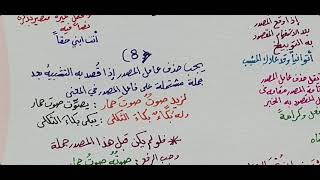 إذا وقع المصدر
بعد الاستفهام المقصود
به التوبيخ
أتوانياً وقد علاك المشيب
أنت ابني حقاً
(8)
يجب حذف عامل المصدر إذا قُصد به التشبيه بعد
جملة مشتملة على فاعل المصدر في المعنى
لزيدٍ صوتٌ صوتَ حمار : يصوّت صوتَ حمار
وله بكاءٌ بكاءَ الثكلى : يبكي بكاءَ الثكلى
* فلو لم يكن قبل هذا المصدر جملة
وجب الرفع : صوتُه صوتُ حمار